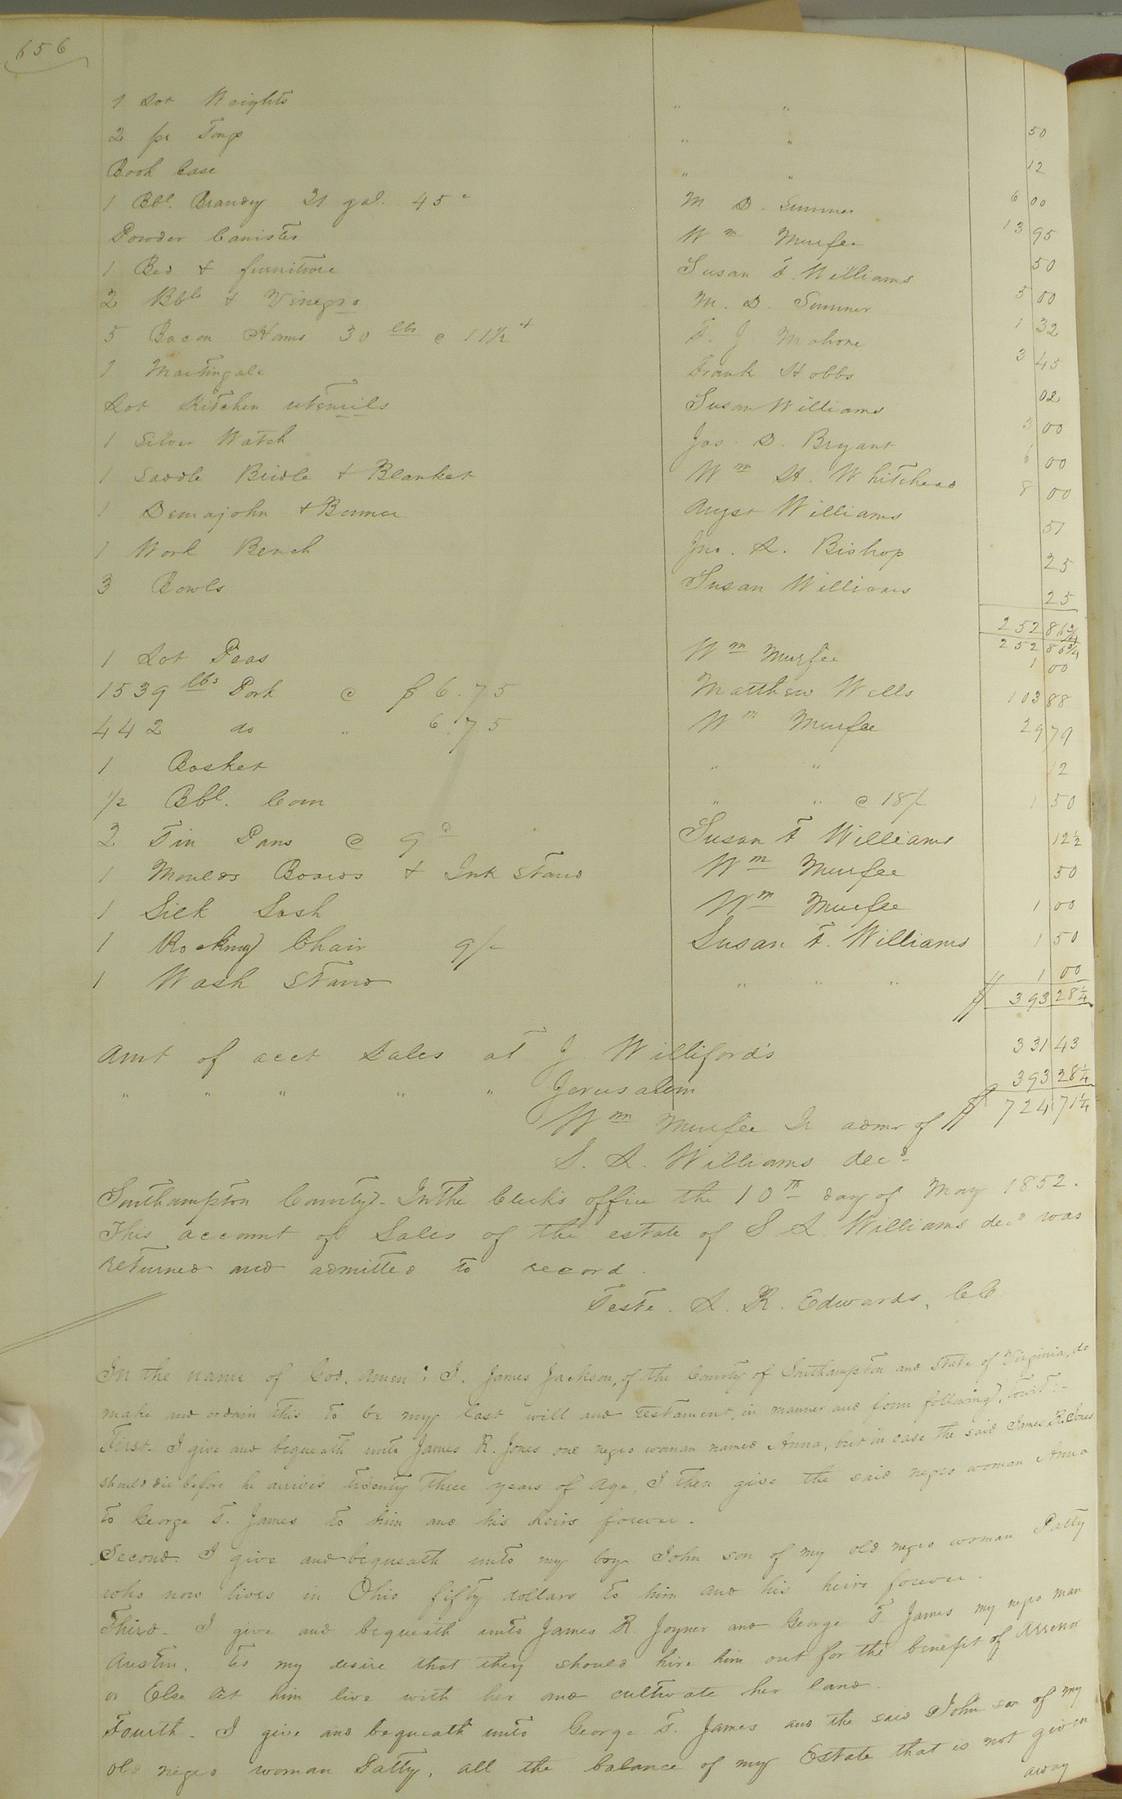 656
1 Lot Weights " " 50
2 pr Tongs " " 12
Book Case " " 6 00
1 Bbl. Brandy 31 gal. 45 c M D. Sumner 13 95
Powder Canister Wm Murfee 50
1 Bed & furniture Susan F. Williams 5 00
2 Bbls & Vinegro M. D. Sumner 1 32
5 Bacon Hams 30 lbs @ 11½ J Mahone 3 45
1 Martingale Frank Hobbs 02
Lot Kitchen utensils Susan Williams 00
1 Silver Watch Jas. D. Bryant 6 00
1 Saddle Bridle & Blanket Wm H. Whitehead 8 00
1 Demajohn & Williams 51
1 Work Bench Jno. L. Bishop 25
3 Bowls Susan Williams 25
252 86¾
252 86¾
1 Lot Peas Wm Murfee 1 00
1539 lbs Pork @ $6.75 Matthew Wells 103 88
442 do " 6.75 Wm Murfee 29 79
1 Basket " " 12
½ Bbl. Corn " " @ 18/ 1 50
2 Tin Pans @ 9 d Susan F Williams 12½
1 Moulds Boards & Ink Stand Wm Murfee 50
1 Silk Sash Wm Murfee 1 00
1 Rocking Chair 9/ Susan F. Williams 1 50
1 Wash Stand " " " 1 00
$ 393 28¼
Amt of acct Sales at J Williford's 331 43
" " " " " Jerusalem 393 28¼
Wm Murfee Jr admr of $ 724 71¼
S. L. Williams decd
Southampton County. In the Clerk's office the 10th day of May 1852.
This account of Sales of the estate of S L Williams decd was
returned and admitted to record.
Teste. L. R. Edwards, CC
In the name of God, Amen: I, James Jackson, of the County of Southampton and State of Virginia, do
make and ordain this to be my last will and testament, in manner and form following, towit:-
First. I give and bequeath unto James R. Jones one negro woman named Anna, but in case the said James R. Jones
should die before he arrives twenty three years of age, I then give the said negro woman Anna
to George T. James to him and his heirs forever.
Second. I give and bequeath unto my boy John son of my old negro woman Patty
who now lives in Ohio fifty dollars to him and his heirs forever.
Third. I give and bequeath unto James R. Joyner and George T James my negro man
Austin. Its my desire that they should hire him out for the benefit of
or Else let him live with her and cultivate her land.
Fourth. I give and bequeath unto George T. James and the said John son of my
old negro woman Patty, all the balance of my Estate that is not given
away